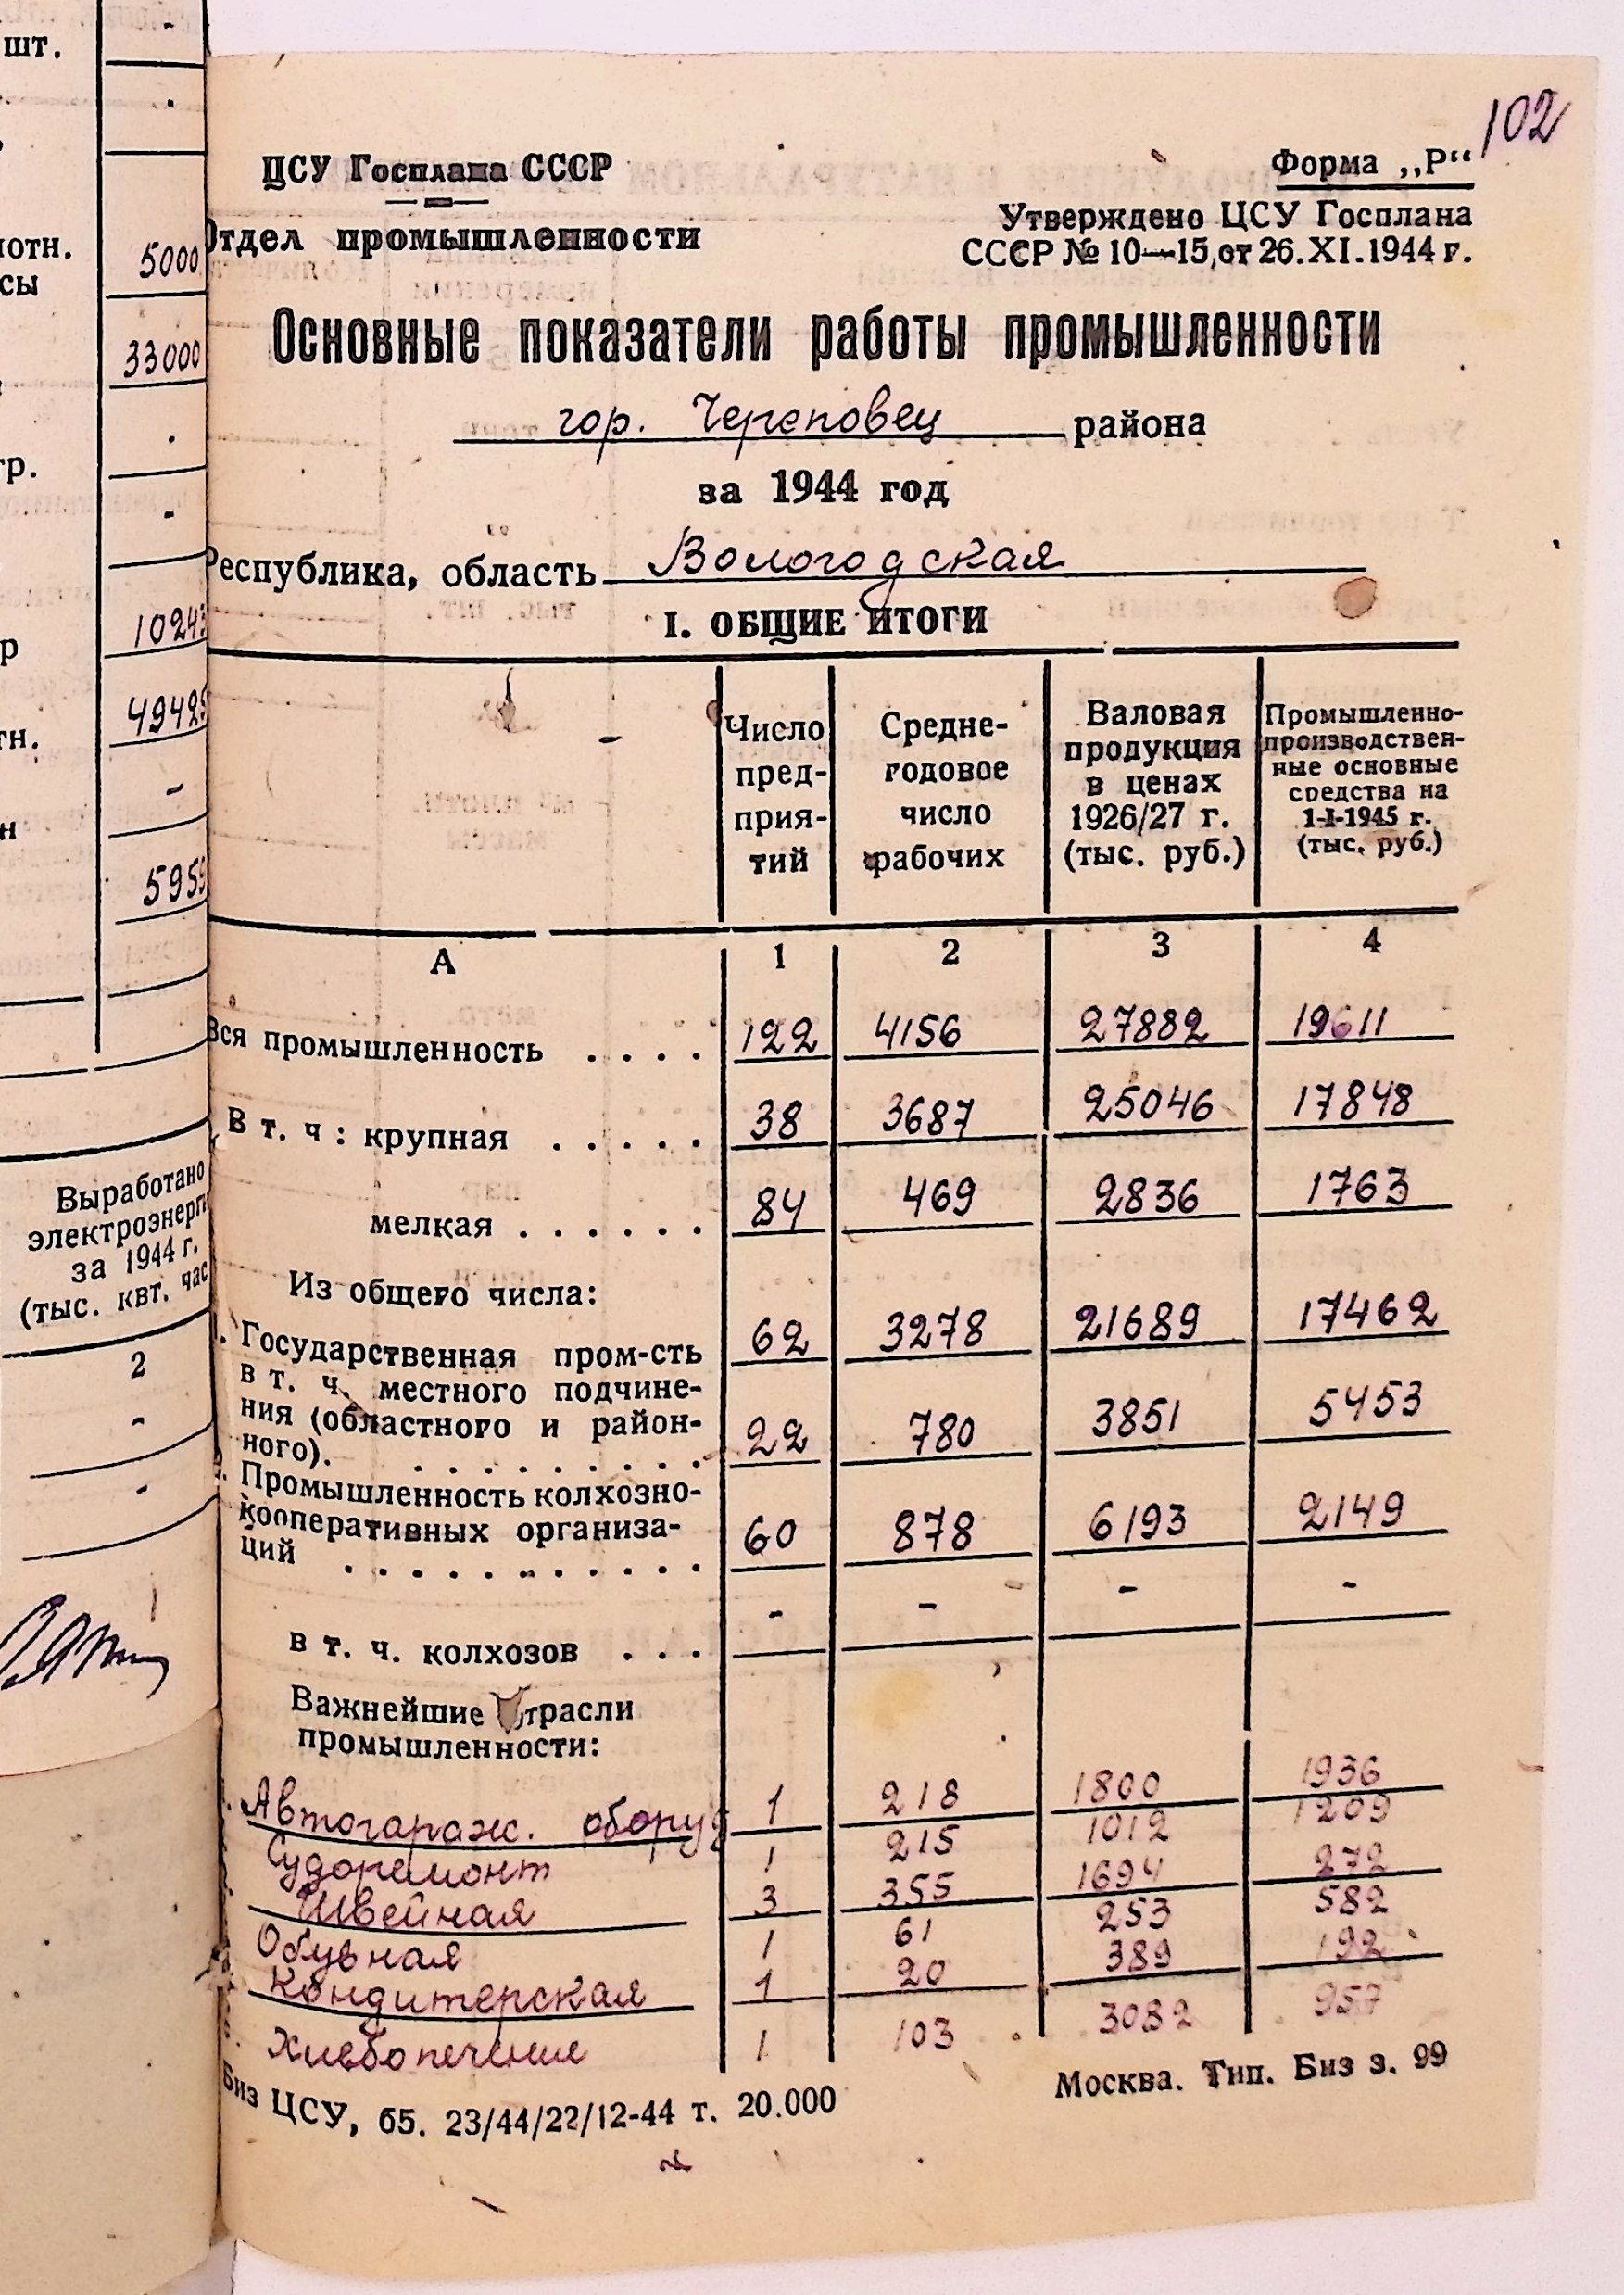 шт.
-
.
5000
лотн.
сы
33000
.
гр.
-
10243
р
49425
тн.
-
н
5955
Выработано
электроэнерги
за 1944 г.
(тыс. квт. час
2
-
-
102
ЦСУ Госплана СССР
Форма „Р“
Отдел промышленности
Утверждено ЦСУ Госплана
СССР № 10—15, от 26.XI.1944 г.
Основные показатели работы промышленности
гор. Череповец района
за 1944 год
Республика, область Вологодская
I. ОБЩИЕ ИТОГИ
Число пред- прия- тий
Средне- годовое число рабочих
Валовая продукция в ценах 1926/27 г. (тыс. руб.)
Промышленно- производствен- ные основные средства на 1-I-1945 г. (тыс. руб.)
А 1 2 3 4
Вся промышленность . . . . 122 4156 27882 19611
В т. ч : крупная . . . . . 38 3687 25046 17848
мелкая . . . . . . 84 469 2836 1763
Из общего числа:
1. Государственная пром-сть 62 3278 21689 17462
в т. ч. местного подчине-
ния (областного и район-
ного). . . . . . . . . . 22 780 3851 5453
2. Промышленность колхозно-
кооперативных организа-
ций . . . . . . . . . . . 60 878 6193 2149
в т. ч. колхозов . . . - - - -
Важнейшие отрасли
промышленности:
Автогараж. оборуд 1 218 1800 1936
Судоремонт 1 215 1012 1209
Швейная 3 355 1694 272
Обувная 1 61 253 582
Кондитерская 1 20 389 192
Хлебопечение 1 103 3082 957
Биз ЦСУ, б5. 23/44/22/12-44 т. 20.000
Москва. Тип. Биз з. 99